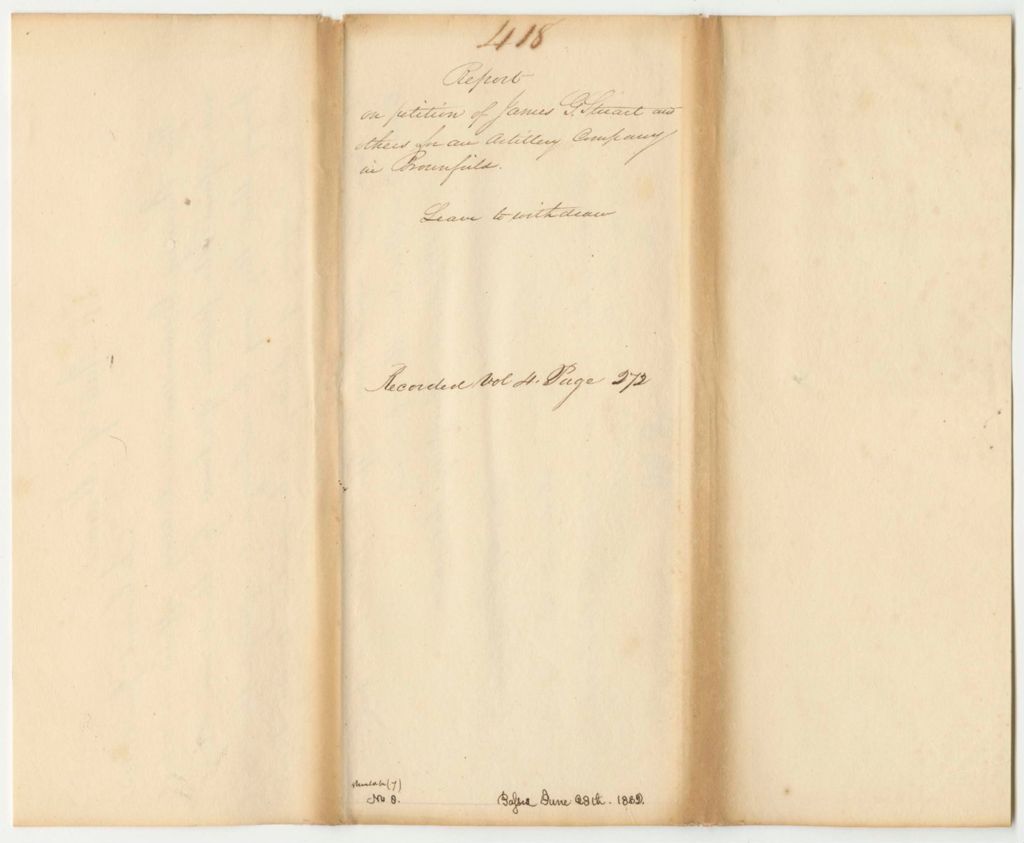 418
Report
on petition of James G. Stuart and
others for an Artillery Company
in Brownfield.
Leave to withdraw
Recorded Vol 4. Page 272
(7)
No 8.
June 28th. 1832.